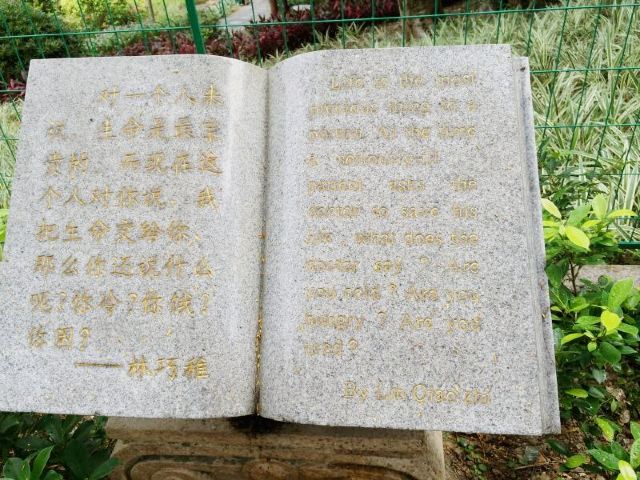 对一个人来
说，生命是最宝
贵的，而现在这
个人对你说，我
把生命交给你，
那么你还说什么
呢？你冷？你饿？
你困？
——林巧稚
Life is the most
precious thing to a
person. At the time
a seriously-ill
patient asks the
doctor to save his
life, what does the
doctor say? Are
you cold? Are you
hungry? Are you
tired?
By Lin Qiaozhi